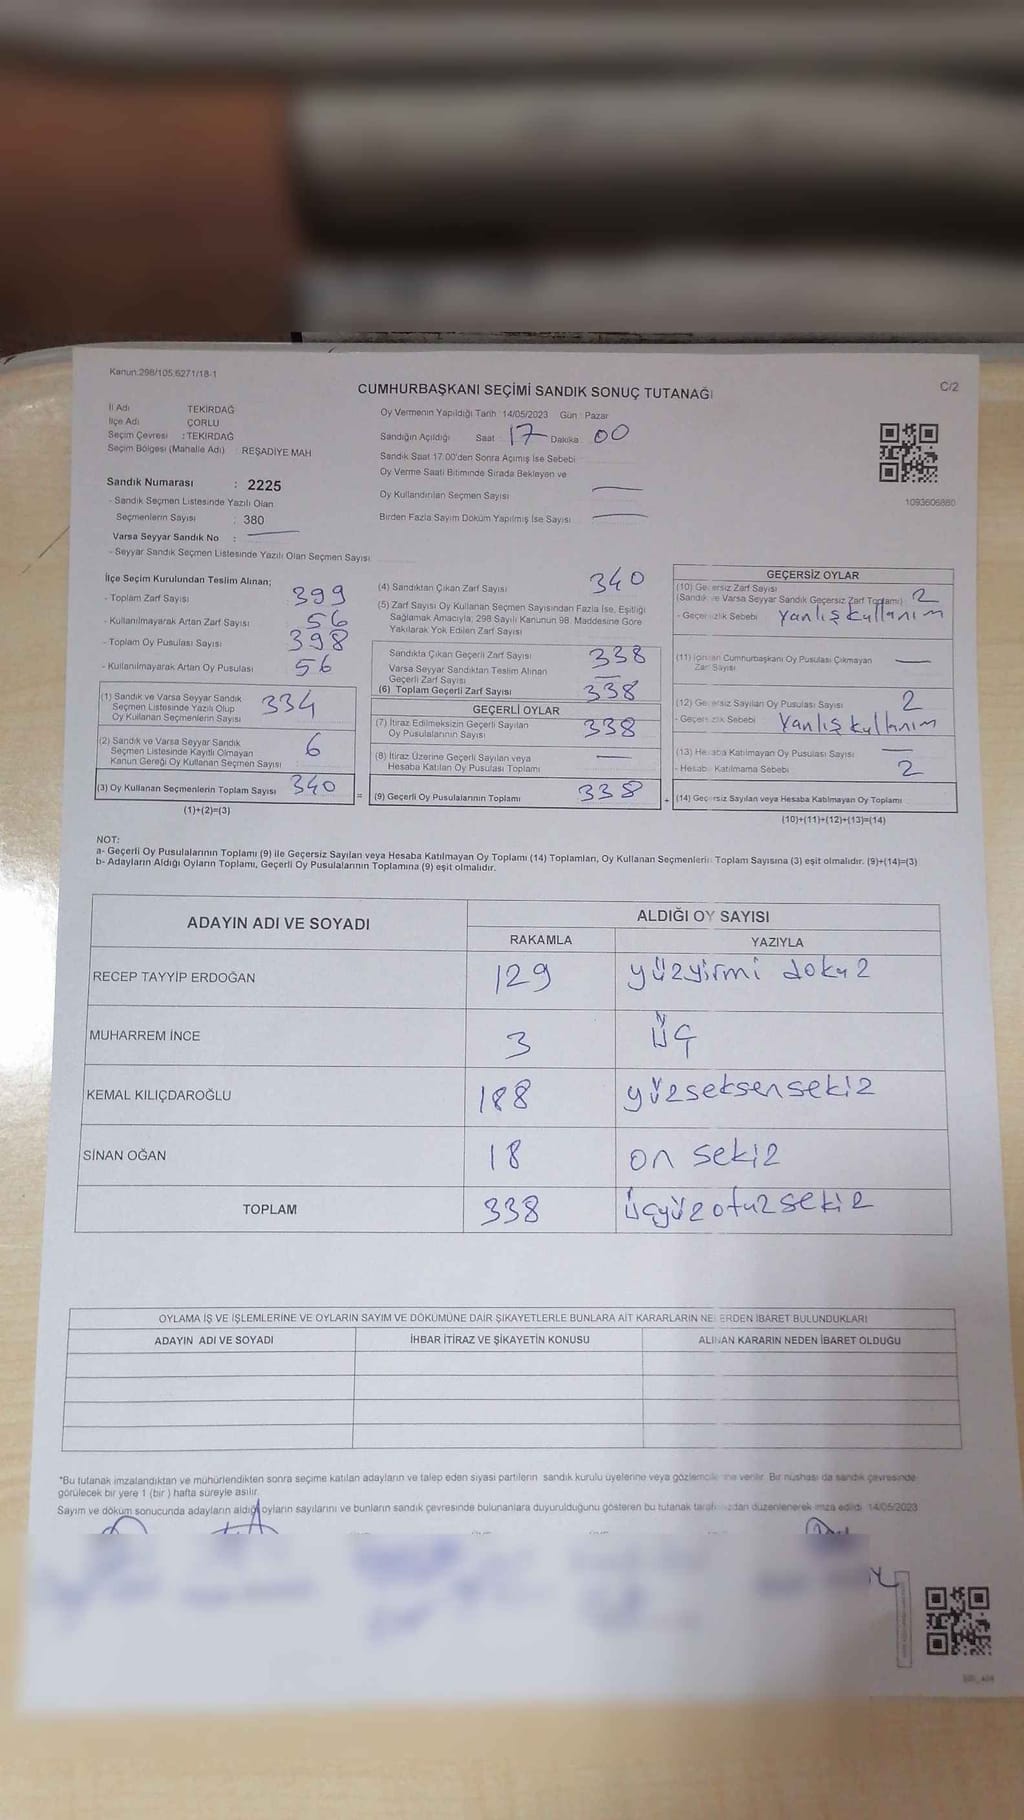 Kanun:298/105,6271/18-1
C/2
CUMHURBAŞKANI SEÇİMİ SANDIK SONUÇ TUTANAĞI
İl Adı TEKİRDAĞ
İlçe Adı ÇORLU
Seçim Çevresi : TEKİRDAĞ
Seçim Bölgesi (Mahalle Adı) : REŞADİYE MAH
Sandık Numarası : 2225
- Sandık Seçmen Listesinde Yazılı Olan
Seçmenlerin Sayısı : 380
Varsa Seyyar Sandık No :
- Seyyar Sandık Seçmen Listesinde Yazılı Olan Seçmen Sayısı
Oy Vermenin Yapıldığı Tarih : 14/05/2023 Gün : Pazar
Sandığın Açıldığı Saat : 17 Dakika 00
Sandık Saat 17:00'den Sonra Açımış İse Sebebi
Oy Verme Saati Bitiminde Sırada Bekleyen ve
Oy Kullandırılan Seçmen Sayısı
Birden Fazla Sayım Döküm Yapılmış İse Sayısı
1093606880
İlçe Seçim Kurulundan Teslim Alınan;
- Toplam Zarf Sayısı 399
- Kullanılmayarak Artan Zarf Sayısı 56
- Toplam Oy Pusulası Sayısı 398
- Kullanılmayarak Artan Oy Pusulası 56
(1) Sandık ve Varsa Seyyar Sandık
Seçmen Listesinde Yazılı Olup
Oy Kullanan Seçmenlerin Sayısı 334
(2) Sandık ve Varsa Seyyar Sandık
Seçmen Listesinde Kayıtlı Olmayan
Kanun Gereği Oy Kullanan Seçmen Sayısı : 6
(3) Oy Kullanan Seçmenlerin Toplam Sayısı 340
(1)+(2)=(3)
(4) Sandıktan Çıkan Zarf Sayısı 340
(5) Zarf Sayısı Oy Kullanan Seçmen Sayısından Fazla İse, Eşitliği
Sağlamak Amacıyla; 298 Sayılı Kanunun 98. Maddesine Göre
Yakılarak Yok Edilen Zarf Sayısı
Sandıkta Çıkan Geçerli Zarf Sayısı 338
Varsa Seyyar Sandıktan Teslim Alınan
Geçerli Zarf Sayısı
(6) Toplam Geçerli Zarf Sayısı 338
GEÇERLİ OYLAR
(7) İtiraz Edilmeksizin Geçerli Sayılan
Oy Pusulalarının Sayısı 338
(8) İtiraz Üzerine Geçerli Sayılan veya
Hesaba Katılan Oy Pusulası Toplamı
= (9) Geçerli Oy Pusulalarının Toplamı 338 +
GEÇERSİZ OYLAR
(10) Geçersiz Zarf Sayısı
(Sandık ve Varsa Seyyar Sandık Geçersiz Zarf Toplamı) 2
- Geçersizlik Sebebi Yanlış kullanım
(11) Cumhurbaşkanı Oy Pusulası Çıkmayan
Zarf Sayısı
(12) Geçersiz Sayılan Oy Pusulası Sayısı 2
- Geçersizlik Sebebi Yanlış kullanım
(13) Hesaba Katılmayan Oy Pusulası Sayısı
- Hesaba Katılmama Sebebi 2
(14) Geçersiz Sayılan veya Hesaba Katılmayan Oy Toplamı
(10)+(11)+(12)+(13)=(14)
NOT:
a- Geçerli Oy Pusulalarının Toplamı (9) ile Geçersiz Sayılan veya Hesaba Katılmayan Oy Toplamı (14) Toplamları, Oy Kullanan Seçmenlerin Toplam Sayısına (3) eşit olmalıdır. (9)+(14)=(3)
b- Adayların Aldığı Oyların Toplamı, Geçerli Oy Pusulalarının Toplamına (9) eşit olmalıdır.
ADAYIN ADI VE SOYADI
ALDIĞI OY SAYISI
RAKAMLA YAZIYLA
RECEP TAYYİP ERDOĞAN 129 yüzyirmi dokuz
MUHARREM İNCE 3 üç
KEMAL KILIÇDAROĞLU 188 yüzseksensekiz
SİNAN OĞAN 18 on sekiz
TOPLAM 338 üçyüzotuzsekiz
OYLAMA İŞ VE İŞLEMLERİNE VE OYLARIN SAYIM VE DÖKÜMÜNE DAİR ŞİKAYETLERLE BUNLARA AİT KARARLARIN NELERDEN İBARET BULUNDUKLARI
ADAYIN ADI VE SOYADI İHBAR İTİRAZ VE ŞİKAYETİN KONUSU ALINAN KARARIN NEDEN İBARET OLDUĞU
*Bu tutanak imzalandıktan ve mühürlendikten sonra seçime katılan adayların ve talep eden siyasi partilerin sandık kurulu üyelerine veya gözlemcilerine verilir. Bir nüshası da sandık çevresinde
görülecek bir yere 1 (bir) hafta süreyle asılır.
Sayım ve döküm sonucunda adayların aldığı oyların sayılarını ve bunların sandık çevresinde bulunanlara duyurulduğunu gösteren bu tutanak tarafımızdan düzenlenerek imza edildi. 14/05/2023